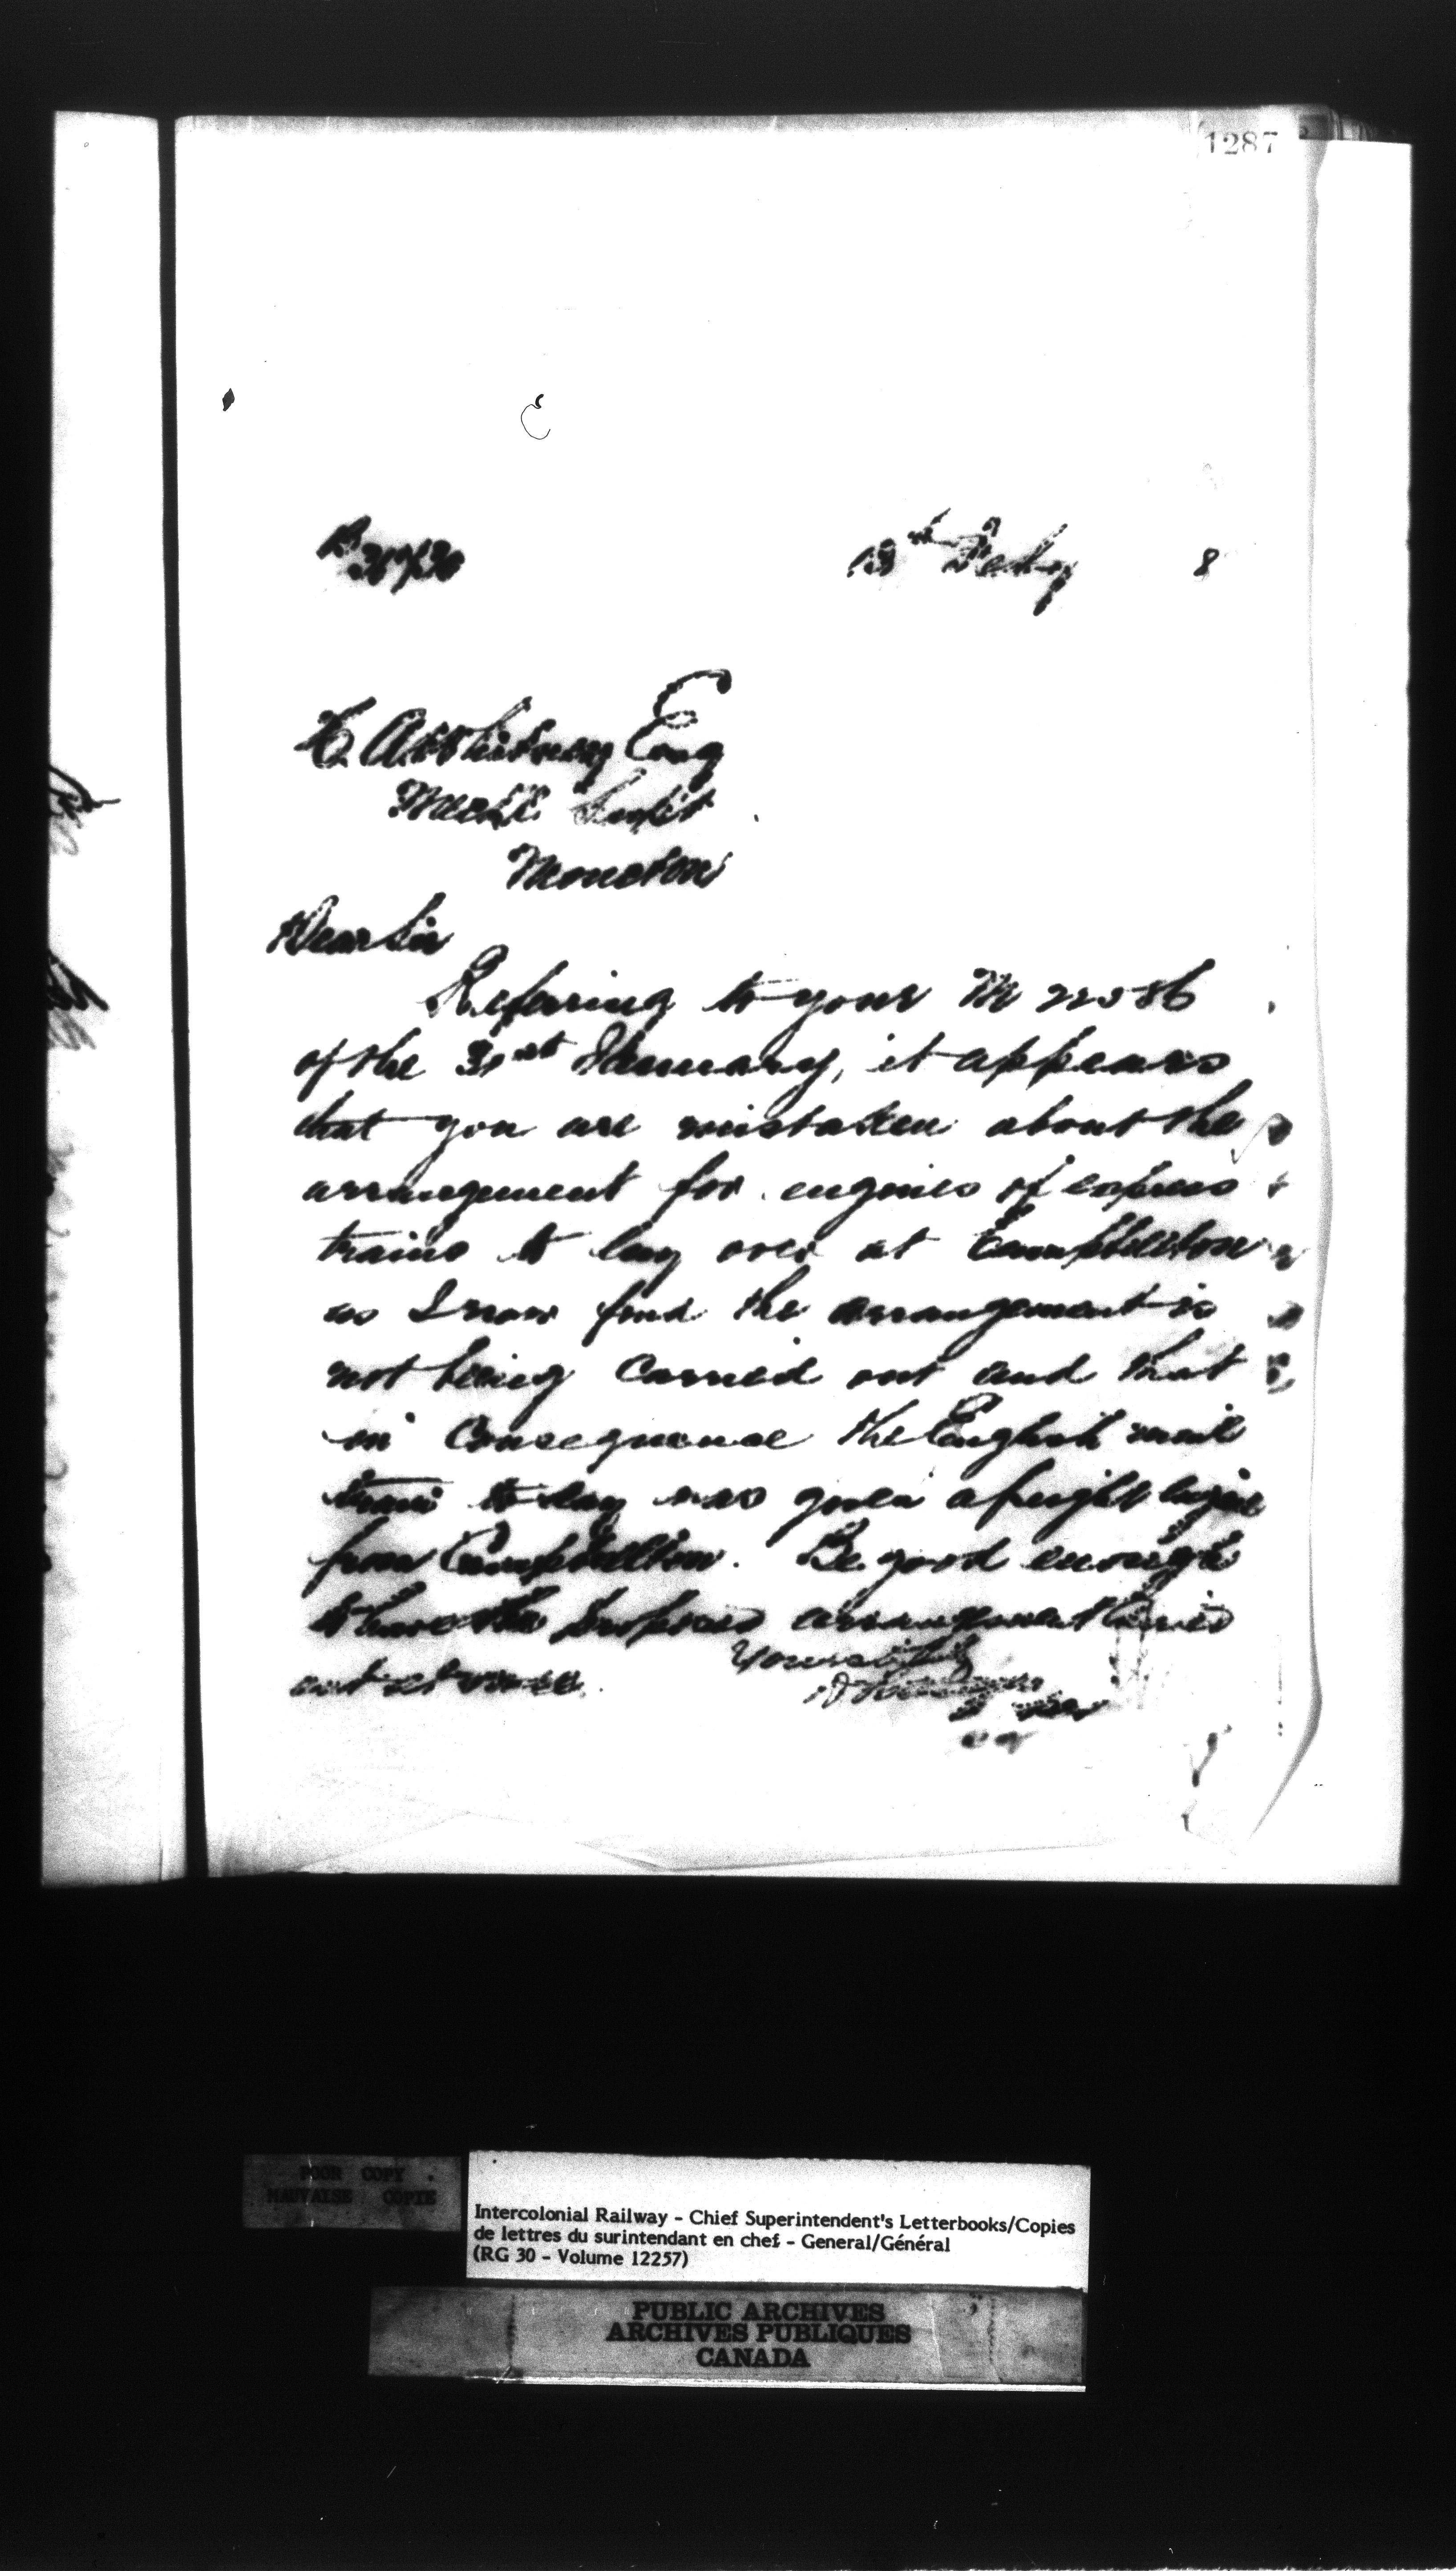 1287
13th Feby 8
H. A. Whitney Esq
Mechl Supt
Moncton
Dear Sir
Refering to your M 22586
of the 31st January, it appears
that you are mistaken about the
arrangement for engines of express
trains to lay over at Campbellton
as I now find the arrangement is
not being carried out and that
in consequence the English mail
train to day was given a freight engine
from Campbellton. Be good enough
to have the arrangement carried
out at once.
Yours
POOR COPY
MAUVAISE COPIE
Intercolonial Railway - Chief Superintendent's Letterbooks/Copies
de lettres du surintendant en chef - General/Général
(RG 30 - Volume 12257)
PUBLIC ARCHIVES
ARCHIVES PUBLIQUES
CANADA